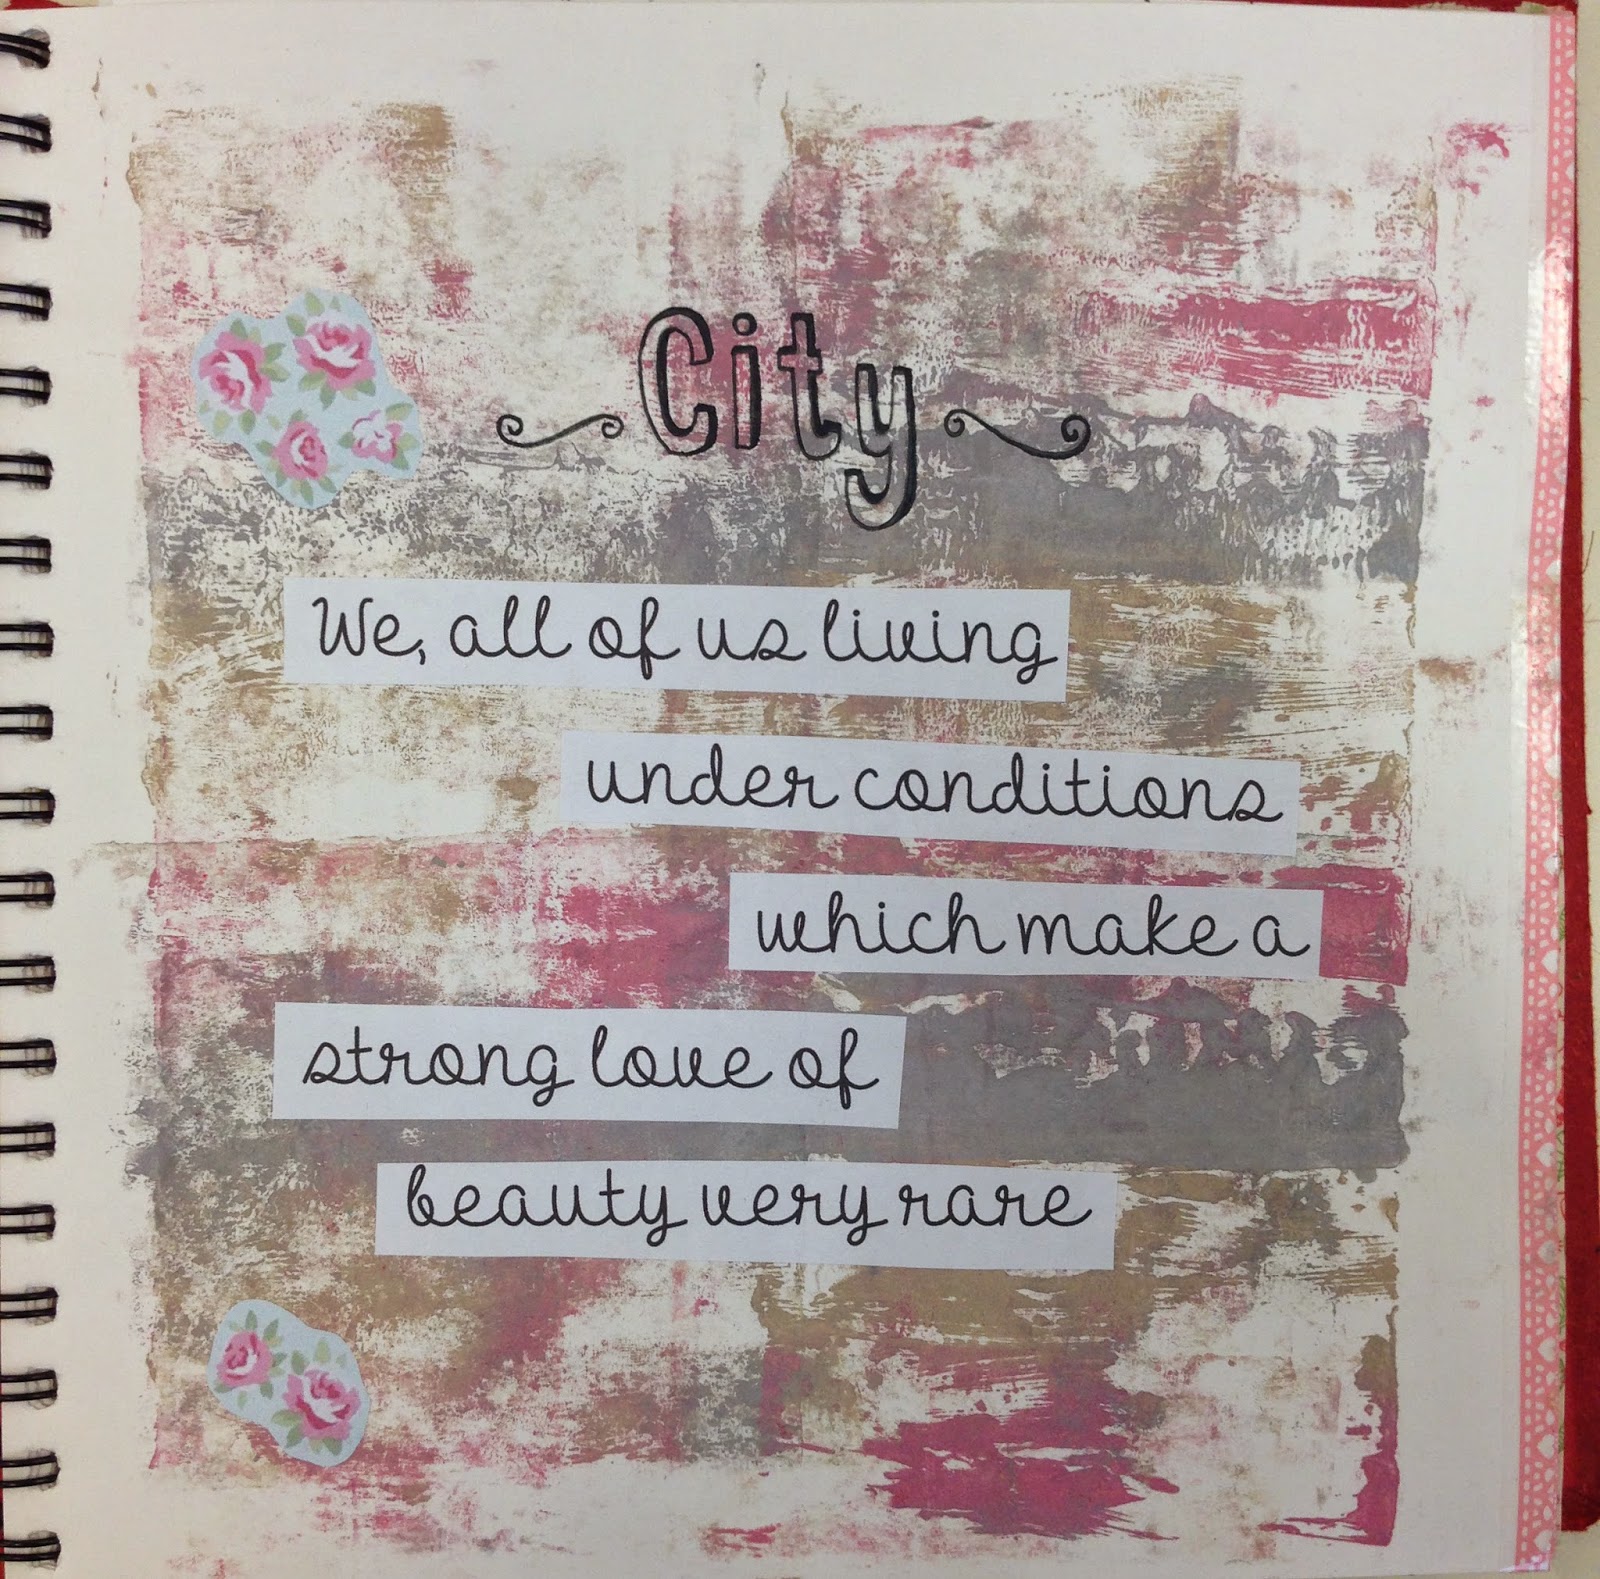 City
We, all of us living
under conditions
which make a
strong love of
beauty very rare